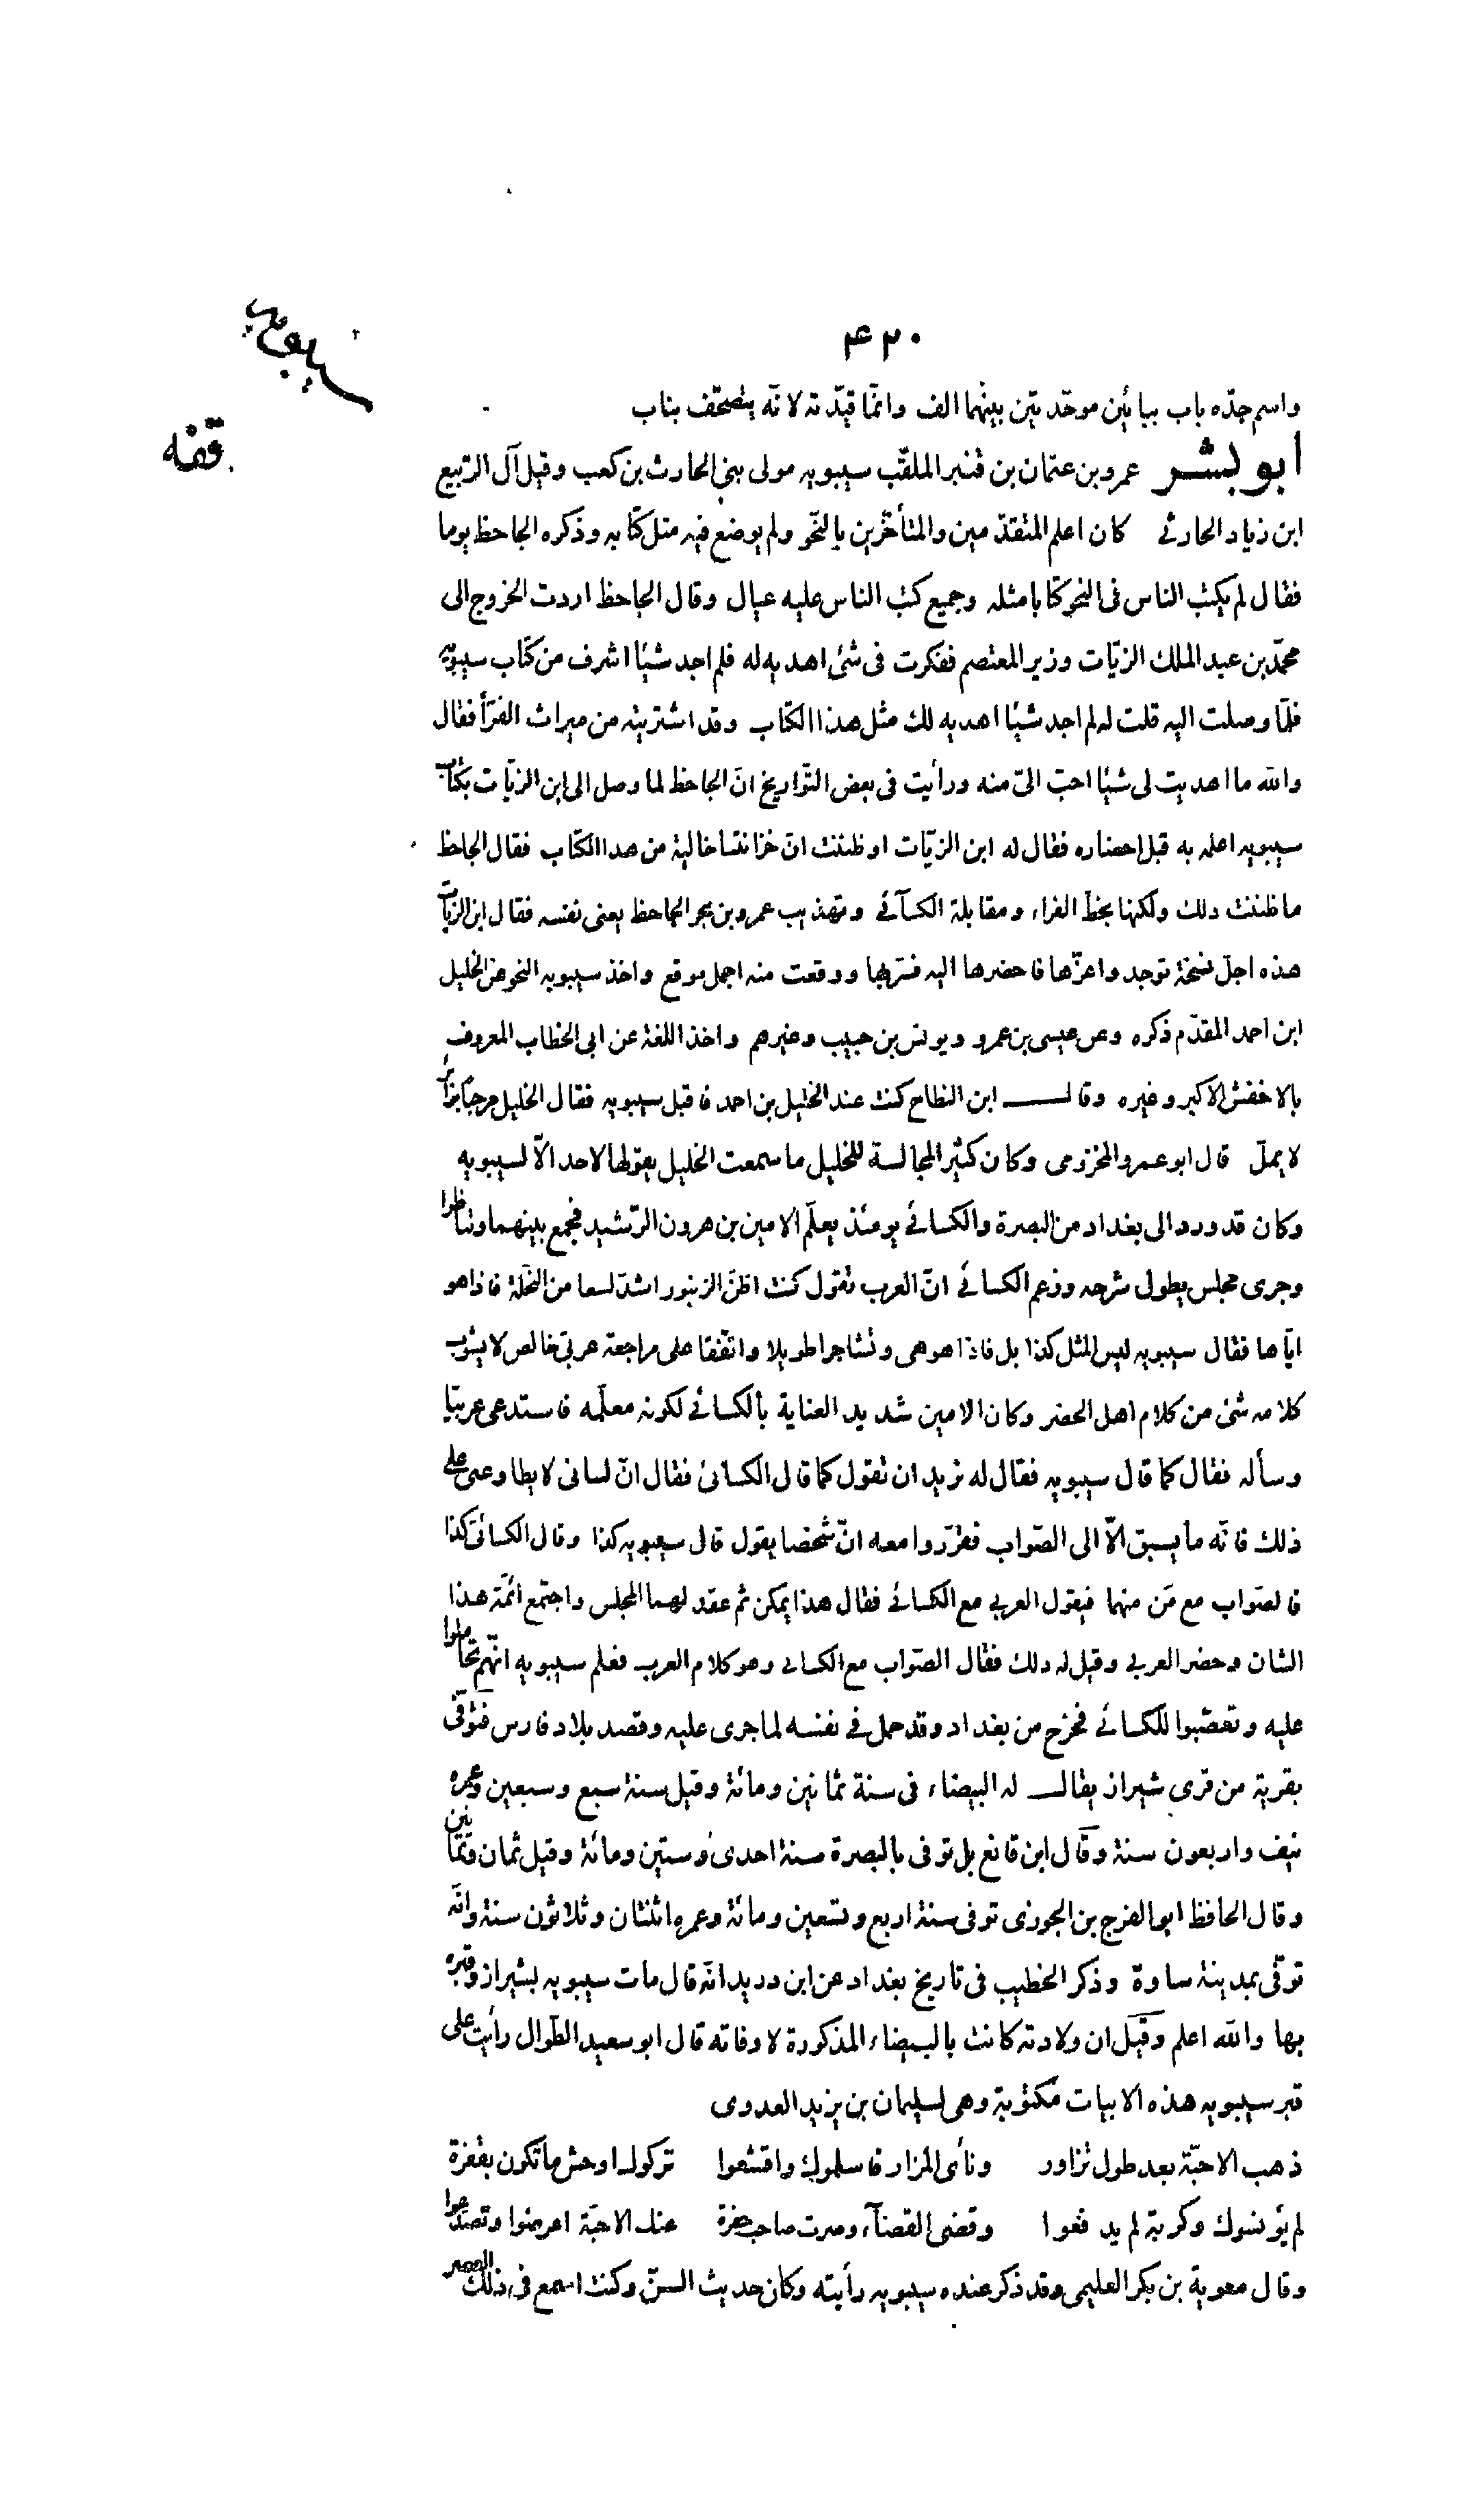 ۴۲۰
سيبويه
قفه
واسم جدّه باب ببائين موحّدتين بينهما الف وانّما قيّدته لانّه يتصحّف بناب
أبو بشر عمرو بن عثمان بن قنبر الملقّب سيبويه مولى بنى الحارث بن كعب وقيل آل الربيع
ابن زياد الحارثي كان اعلم المتقدّمين والمتأخّرين بالنّحو ولم يوضع فيه مثل كتابه وذكره الجاحظ يوما
فقال لم يكتب الناس فى النحو كتابا مثله وجميع كتب الناس عليه عيال وقال الجاحظ اردت الخروج الى
محمّد بن عبد الملك الزيّات وزير المعتصم ففكرت فى شئ اهديه له فلم اجد شيئا اشرف من كتاب سيبويه
فلمّا وصلت اليه قلت له لم اجد شيئا اهديه لك مثل هذا الكتاب وقد اشتريته من ميراث الفرّأ فقال
والله ما اهديت لى شيئا احبّ الىّ منه ورأيت فى بعض التّواريخ انّ الجاحظ لما وصل الى ابن الزيّات بكتاب
سيبويه اعلمه به قبل احضاره فقال له ابن الزيّات او ظننت انّ خزانتنا خالية من هذا الكتاب فقال الجاحظ
ما ظننت ذلك ولكنها بخطّ الفراء ومقابلة الكسآئي وتهذيب عمرو بن بحر الجاحظ يعنى نفسه فقال ابن الزيات
هذه اجلّ نسخة توجد واعزّها فاحضرها اليه فسرّ بها ووقعت منه اجمل موقع واخذ سيبويه النحو عن الخليل
ابن احمد المقدّم ذكره وعن عيسى بن عمرو ويونس بن حبيب وغيرهم واخذ اللغة عن ابى الخطاب المعروف
بالاخفش الاكبر وغيره وقال ابن النطاح كنت عند الخليل بن احمد فاقبل سيبويه فقال الخليل مرحبًا بزائر
لا يملّ قال ابو عمرو المخزومى وكان كثير المجالسة للخليل ما سمعت الخليل يقولها لاحد الّا لسيبويه
وكان قد ورد الى بغداد من البصرة والكسائي يومئذ يعلّم الامين بن هرون الرّشيد فجمع بينهما وتناظروا
وجرى مجلس يطول شرحه وزعم الكسائي انّ العرب تقول كنت اظنّ الزنبور اشدّ لسعا من النّحلة فاذا هو
ايّاها فقال سيبويه ليس المثل كذا بل فاذا هو هى وتشاجرا طويلا واتّفقا على مراجعة عربىّ خالص لا يشوب
كلامه شئ من كلام اهل الحضر وكان الامين شديد العناية بالكسائي لكونه معلّمه فاستدعى عربيّا
وسأله فقال كما قال سيبويه فقال له نريد ان تقول كما قال الكسائى فقال انّ لسانى لا يطاوعنى على
ذلك فانّه ما يسبق الّا الى الصّواب فقرّروا معه انّ شخصا يقول قال سيبويه كذا وقال الكسائى كذا
فالصّواب مع مَن منهما فيقول العربي مع الكسائي فقال هذا يمكن ثم عقد لهما المجلس واجتمع ائمّة هذا
الشان وحضر العربي وقيل له ذلك فقال الصّواب مع الكسائى وهو كلام العرب فعلم سيبويه انّهم تحاملوا
عليه وتعصّبوا للكسائي فخرج من بغداد وقد حمل في نفسه لما جرى عليه وقصد بلاد فارس فتوفّى
بقرية من قرى شيراز يقال له البيضاء فى سنة ثمانين ومائة وقيل سنة سبع وسبعين وعمره
نيف واربعون سنة وقال ابن قانع بل توفى بالبصرة سنة احدى وستين ومائة وقيل ثمان وثمانين
وقال الحافظ ابو الفرج بن الجوزى توفى سنة اربع وتسعين ومائة وعمره اثنتان وثلاثون سنة وانّه
توفّى بمدينة ساوة وذكر الخطيب فى تاريخ بغداد عن ابن دريد انّه قال مات سيبويه بشيراز وقبره
بها والله اعلم وقيل ان ولادته كانت بالبيضاء المذكورة لا وفاته قال ابو سعيد الطّوال رأيت على
قبر سيبويه هذه الابيات مكتوبة وهى لسليمان بن يزيد العدوى
ذهب الاحبّة بعد طول تزاور ونأى المزار فاسلموك واقشعوا تركوك اوحش ما تكون بقفرة
لم يؤنسوك وكربة لم يدفعوا وقضى القضآء وصرت صاحب حفرة عنك الاحبّة اعرضوا وتصدّعوا
وقال معوية بن بكر العليمى وقد ذكر عنده سيبويه رأيته وكان حديث السنّ وكنت اسمع فى ذلك العصر